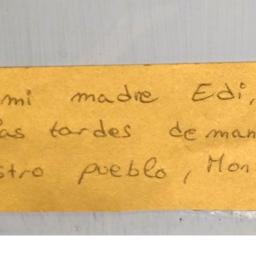 mi madre Edi,
as tardes de man
stro pueblo, Mon